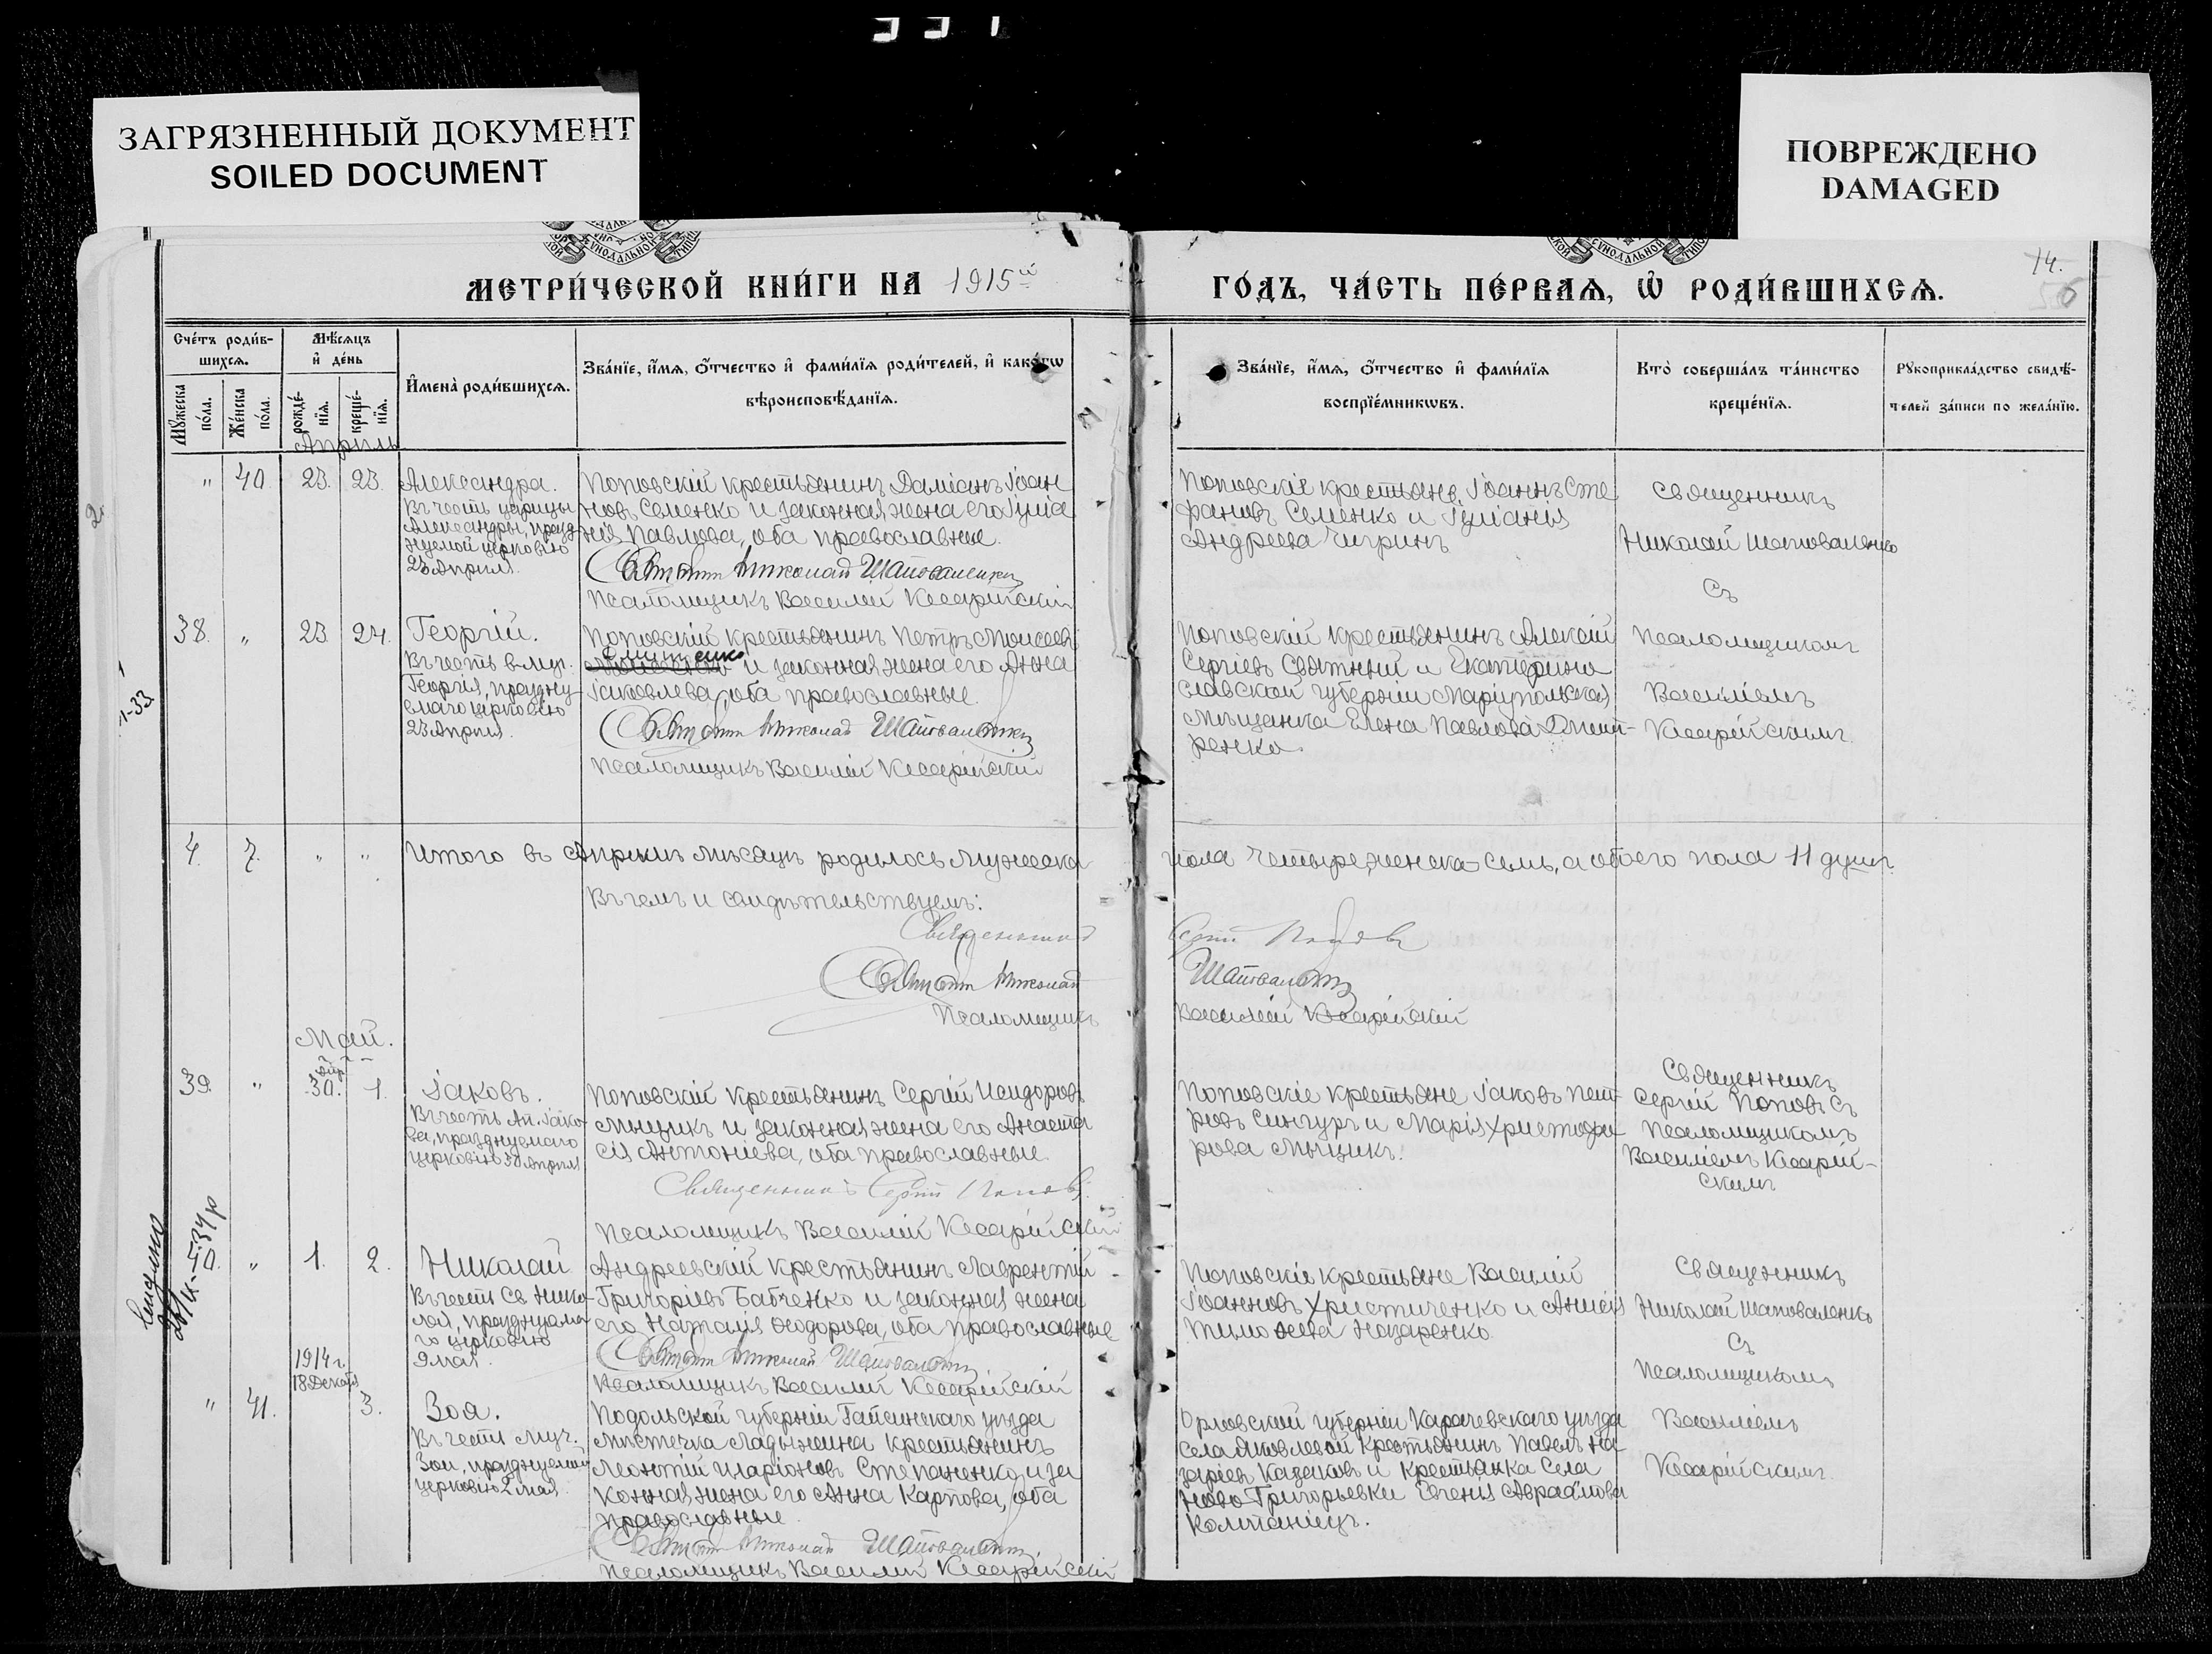 ЗАГРЯЗНЕННЫЙ ДОКУМЕНТ
SOILED DOCUMENT
ПОВРЕЖДЕНО
DAMAGED
МЕТРИ́ЧЕСКОЙ КНИ́ГИ НА 1915й
ГО́ДЪ, ЧА́СТЬ ПЕ́РВАЯ, Ѡ РОДИ́ВШИХСЯ.
14.
Сче́тъ роди́в-
шихся.
Мѣ́сяцъ
и де́нь
Мꙋ́жеска
по́ла.
Же́нска
по́ла.
рожде́-
нїя.
креще́-
нїя.
И҆мена̀ роди́вшихся.
Зва́нїе, и҆́мя, ѻ҆́тчество и҆ фами́лїя роди́телей, и҆ како́гѡ
вѣроисповѣ́данїя.
Зва́нїе, и҆́мя, ѻ҆́тчество и҆ фами́лїя
воспрїе́мникѡвъ.
Кто̀ соверша́лъ та́инство
креще́нїя.
Рꙋкоприкла́дство свидѣ́-
телей за́писи по жела́нїю.
Апрѣль
" 40. 23. 23. Александра.
Въ честь царицы
Александры, празд-
нуемой церковію
23 Апрѣля.
Поповскій крестьянинъ Даміанъ Іоан
новъ Семенко и законная жена его Іуліа
нія Павлова, оба православные.
Николай Шаповаленко
Псаломщикъ Василій Кесарійскій
Поповскіе крестьяне Іоаннъ Сте
фановъ Семенко и Іуліанія
Андреева Чигринъ
Священникъ
Николай Шаповаленко
Съ
Псаломщикомъ
Василіемъ
Кесарійскимъ.
38. " 23. 24. Георгій.
Въ честь в-муч.
Георгія, праздну-
емаго церковію
23 Апрѣля.
Поповскій крестьянинъ Петръ Моисеевъ
и законная жена его Анна
Іаковлева, оба православные.
Николай Шаповаленко
Псаломщикъ Василій Кесарійскій
Поповскій крестьянинъ Алексій
Сергіевъ Святный и Екатерино
славской губерніи Маріупольская
мѣщанка Елена Павлова Дмит-
ренко.
1-33
4. 7. " " Итого въ Апрѣлѣ мѣсяцѣ родилось мужеска пола четыре, женска - семь, а обоего пола 11 душъ.
Въ чемъ и свидѣтельствуемъ:
Священникъ Сергій Поповъ
Николай Шаповаленко
Псаломщикъ Василій Кесарійскій
Май.
39. " 30. 1. Іаковъ.
Въ честь Ап. Іако-
ва, празднуемаго
церковію 30 Апрѣля
Поповскій крестьянинъ Сергій Исидоровъ
Мыцикъ и законная жена его Анаста
сія Антоніева, оба православные.
Священникъ Сергій Поповъ.
Псаломщикъ Василій Кесарійскій
Поповскіе крестьяне Іаковъ Пет-
ровъ Сингуръ и Марія Христофо
рова Мыцикъ.
Священникъ
Сергій Поповъ съ
Псаломщикомъ
Василіемъ Кесарій-
скимъ
40. " 1. 2. Николай
Въ честь Св. Нико-
лая, празднуема
го церковію
9 мая.
Андреевскій крестьянинъ Лаврентій
Григорьевъ Бабченко и законная жена
его Наталія Ѳеодорова, оба православные
Николай Шаповаленко
Псаломщикъ Василій Кесарійскій
Поповскіе крестьяне Василій
Іоанновъ Христиченко и Анисія
Тимоѳеева Назаренко
Священникъ
Николай Шаповаленко
Съ
Псаломщикомъ
Василіемъ
Кесарійскимъ.
1914 г.
18 Декабря
" 41. 3. Зоя.
Въ честь муч.
Зои, празднуемой
церковію 2 мая.
Подольской губерніи Гайсинскаго уѣзда
мѣстечка Ладыжина крестьянинъ
Леонтій Иларіоновъ Степаненко и за
конная жена его Анна Карпова, оба
православные.
Николай Шаповаленко
Псаломщикъ Василій Кесарійскій
Орловской губерніи Карачевскаго уѣзда
села Яковлевой крестьянинъ Павелъ На
заріевъ Казаковъ и крестьянка села
Ново Григорьевки Евгенія Авраамова
Компаніецъ.